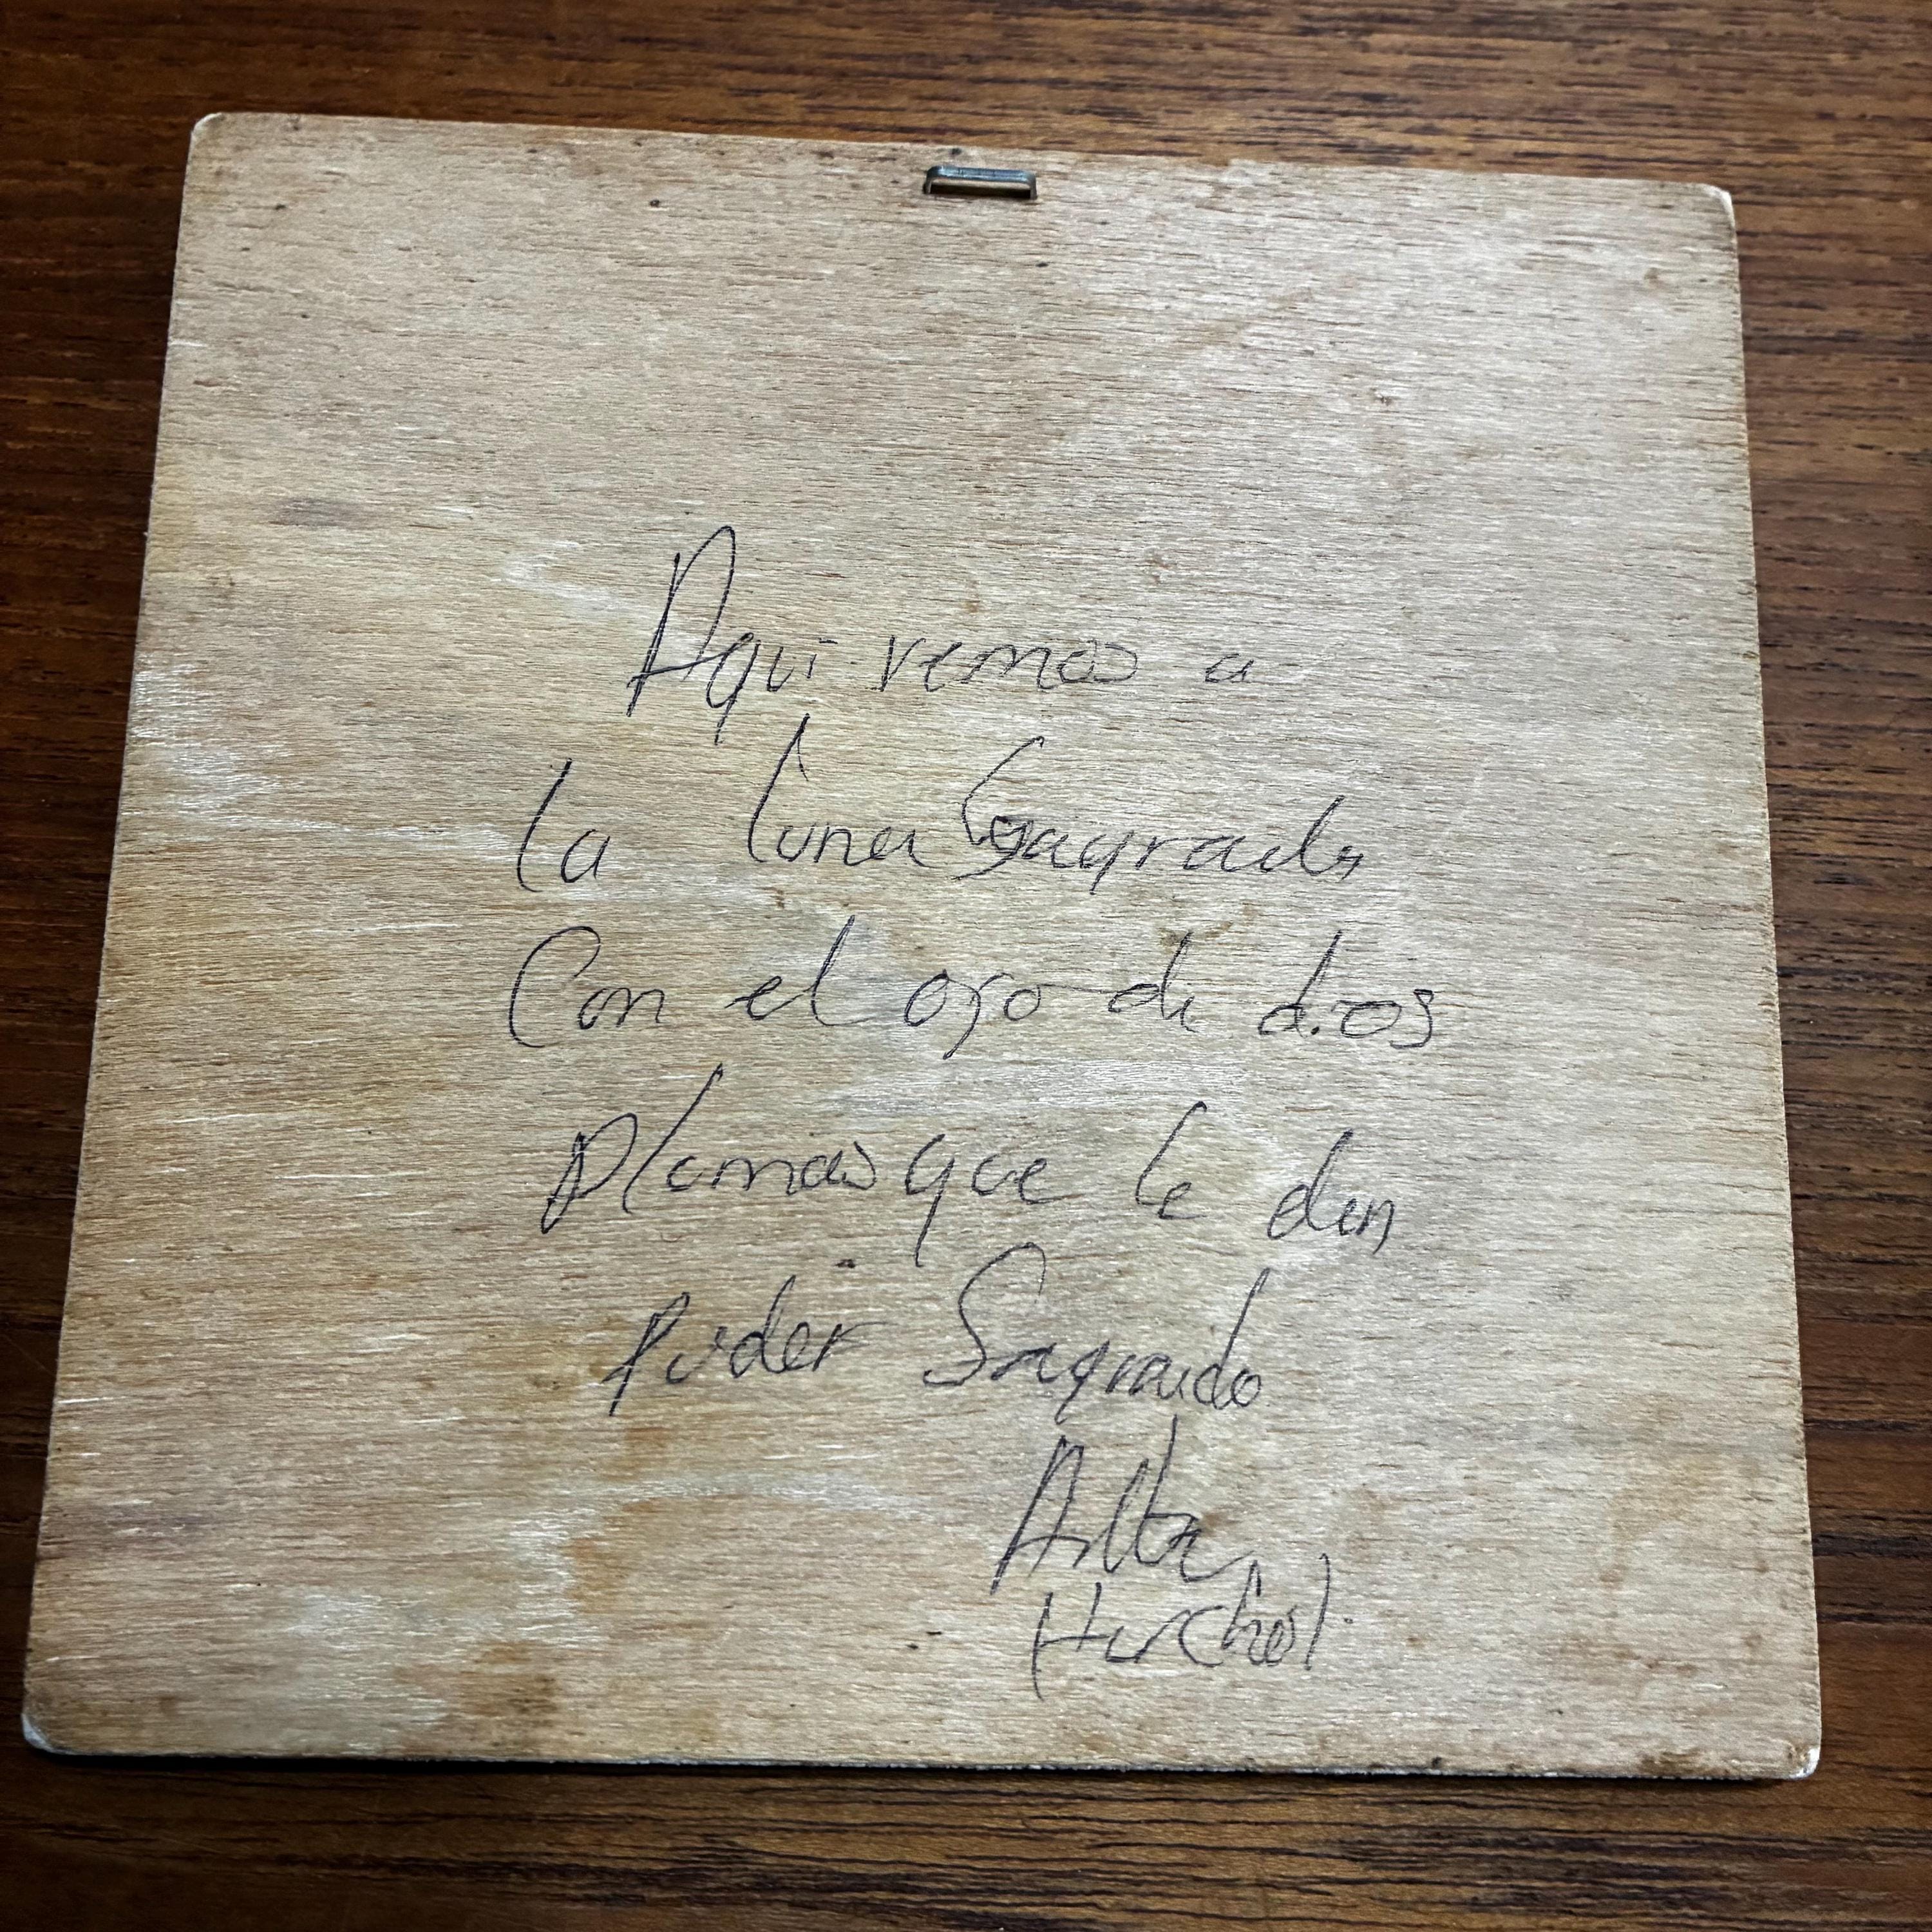 Aqui vemos a
la luna Sagrada
Con el ojo de dios
Plumas que le dan
Poder Sagrado
Huichol